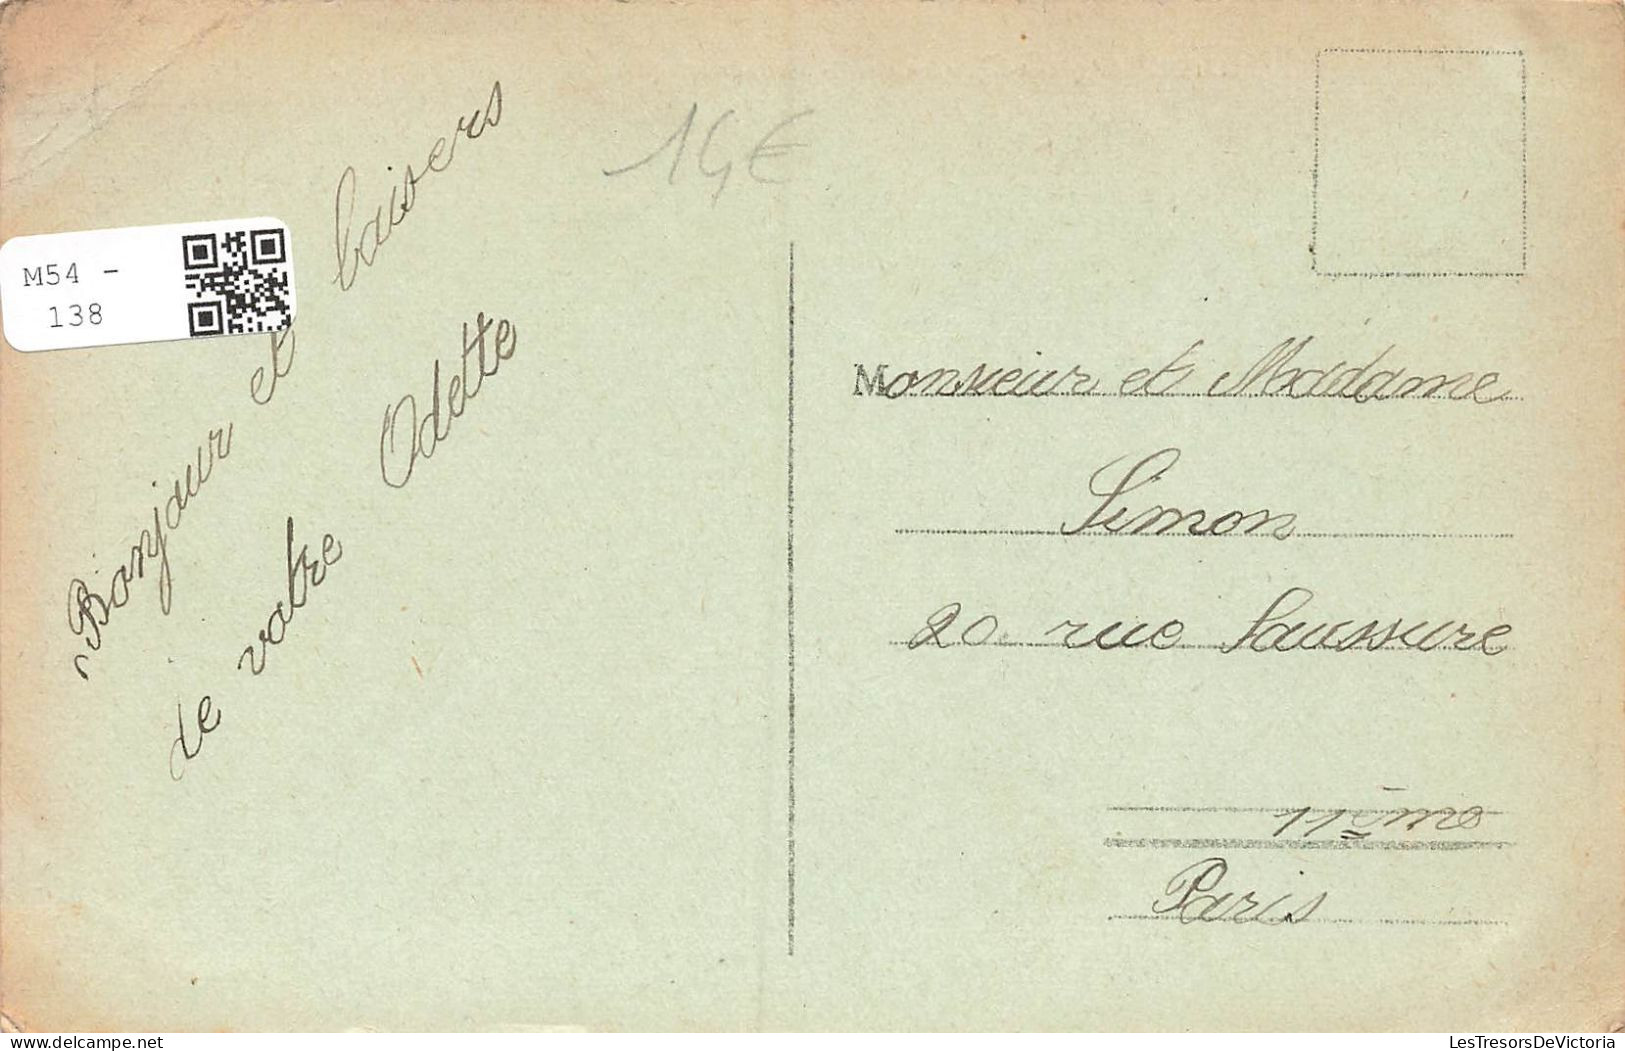 14€
M54 -
138
Bonjour et baisers
de votre Odette
Monsieur et Madame
Simon
20 rue Saussure
11ème
Paris
delcampe.net
LesTresorsDeVictoria